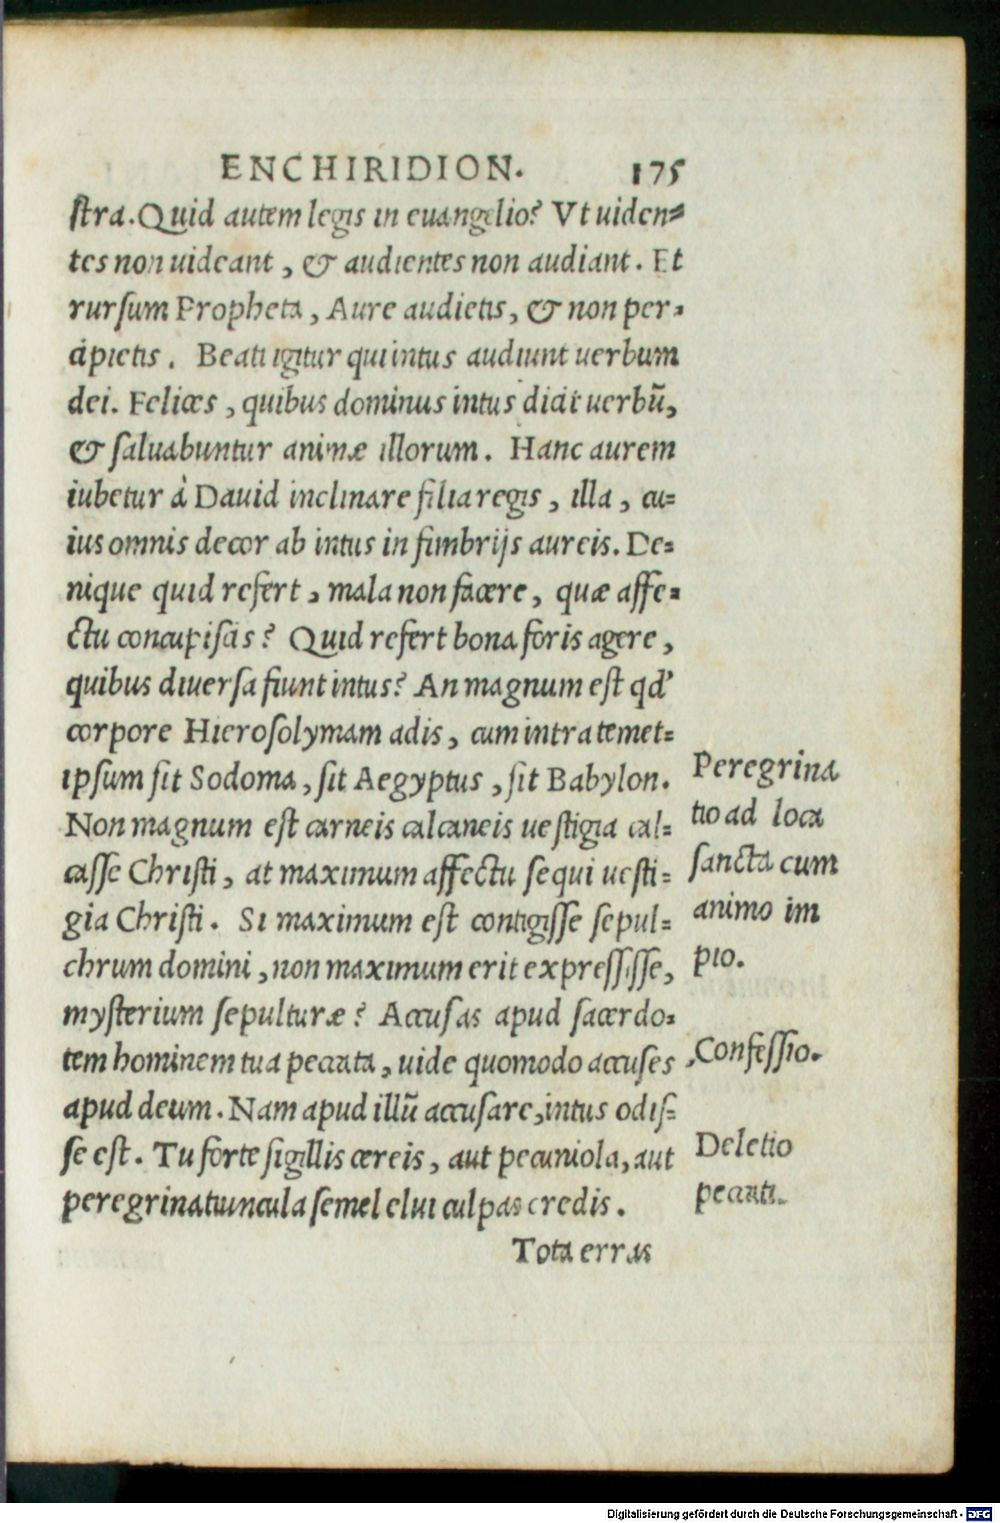 ENCHIRIDION. 175
ſtra. Quid autem legis in euangelio? Vt uiden=
tes non uideant, & audientes non audiant. Et
rurſum Propheta, Aure audietis, & non per=
cipietis. Beati igitur qui intus audiunt uerbum
dei. Felices, quibus dominus intus dicit uerbū,
& ſaluabuntur animæ illorum. Hanc aurem
iubetur à Dauid inclinare filia regis, illa, cu=
ius omnis decor ab intus in fimbrijs aureis. De=
nique quid refert, mala non facere, quæ affe=
ctu concupiſcis? Quid refert bona foris agere,
quibus diuerſa fiunt intus? An magnum eſt qd'
corpore Hieroſolymam adis, cum intra temet=
ipſum ſit Sodoma, ſit Aegyptus, ſit Babylon.
Non magnum eſt carneis calcaneis ueſtigia cal=
caſſe Chriſti, at maximum affectu ſequi ueſti=
gia Chriſti. Si maximum eſt contigiſſe ſepul=
chrum domini, non maximum erit expreſſiſſe,
myſterium ſepulturæ? Accuſas apud ſacerdo=
tem hominem tua peccata, uide quomodo accuſes
apud deum. Nam apud illū accuſare, intus odiſ=
ſe eſt. Tu forte ſigillis cereis, aut pecuniola, aut
peregrinatiuncula ſemel elui culpas credis.
Tota erras
Peregrina
tio ad loca
ſancta cum
animo im
pio.
Confeſſio.
Deletio
peccati.
Digitalisierung gefördert durch die Deutsche Forschungsgemeinschaft - DFG